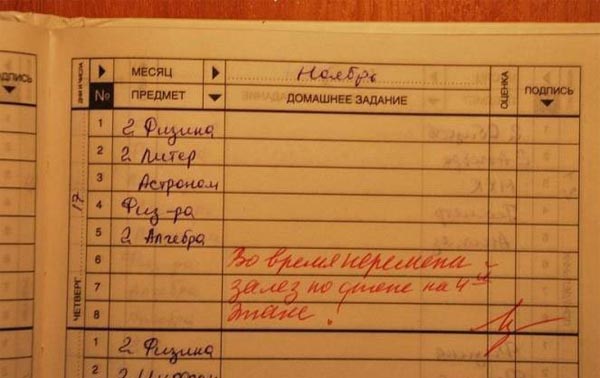 ДНИ И ЧИСЛА МЕСЯЦ Ноябрь ОЦЕНКА ПОДПИСЬ
№ ПРЕДМЕТ ДОМАШНЕЕ ЗАДАНИЕ
1 2 Физика
2 2 Литер
3 Астроном
4 Физ-ра
5 2 Алгебра
6 Во время перемены
7 залез по стене на 4-й
8 этаж!
ЧЕТВЕРГ 17
1 2 Физика
2 2
ДПИСЬ